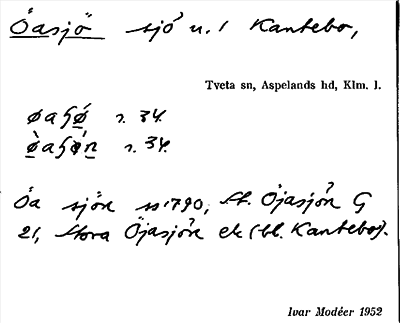 Öasjö sjö n. l Kantebo,
Tveta sn, Aspelands hd, Klm. l.
s. 34.
s. 34.
Öa sjön 1790, St. Öjasjön G
21, Stora Öjasjön ek (bl. Kantebo).
Ivar Modéer 1952